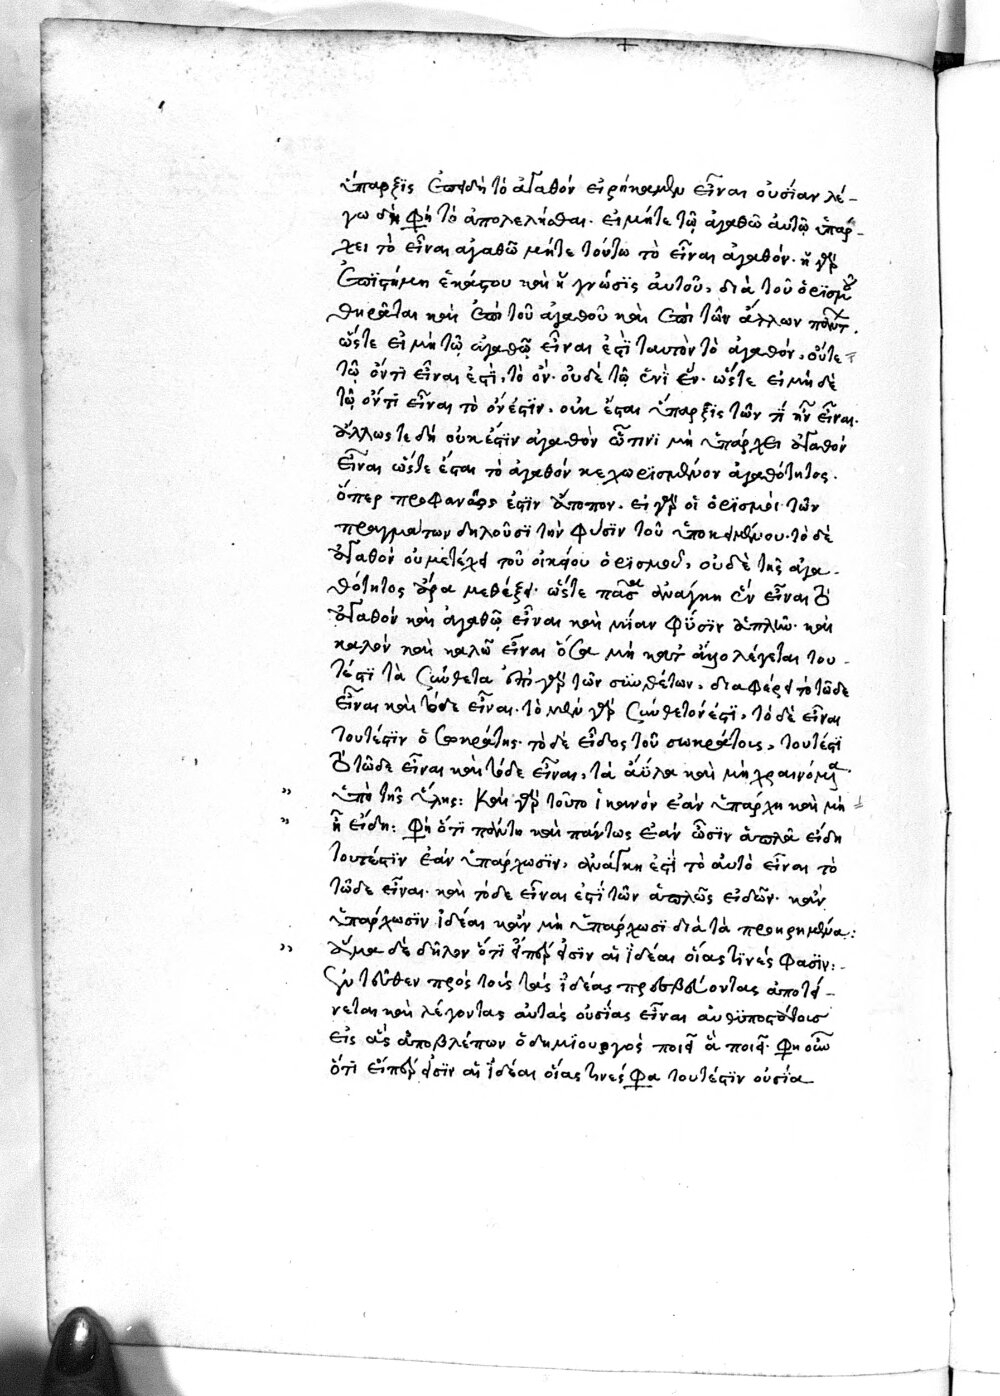 ὕπαρξις ἐπειδὴ τὸ ἀγαθόν εἰρήκαμεν εἶναι οὐσίαν λέ-
γω δὴ φη τὸ ἀπολελύσθαι. εἰ μήτε τῷ ἀγαθῶ αὐτῷ ὑπάρ-
χει τὸ εἶναι ἀγαθῶ μήτε τούτω τὸ εἶναι ἀγαθόν. ἡ γὰρ
ἐπιστήμη ἑκάστου καὶ ἡ γνῶσις αὐτοῦ, διὰ τοῦ ὁρισμοῦ
θηρᾶται καὶ ἐπὶ τοῦ ἀγαθοῦ καὶ ἐπὶ τῶν ἄλλων πάντ.
ὥστε εἰ μὴ τῷ ἀγαθῷ εἶναι ἐστὶ ταυτὸν τὸ ἀγαθόν, οὔτε
τῷ ὄντι εἶναι ἐστὶ, τὸ ὄν. οὐδὲ τῷ ἑνὶ ἕν. ὥστε εἰ μηδὲ
τῷ ὄντι εἶναι τὸ ὄν ἐστιν. οὐκ ἔσται ὕπαρξις τῶν τί ἦν εἶναι.
ἄλλως τε δὴ οὐκ ἐστὶν ἀγαθὸν ᾧτινι μὴ ὑπάρχει ἀγαθόν
εἶναι ὥστε ἔσται τὸ ἀγαθόν κεχωρισμένον ἀγαθότητος.
ὅπερ προφανῶς ἐστὶν ἄτοπον. εἰ γὰρ οἱ ὁρισμοὶ τῶν
πραγμάτων δηλοῦσι τὴν φύσιν τοῦ ὑποκειμένου. τὸ δὲ
ἀγαθὸν οὐ μετέχει τοῦ οἰκείου ὁρισμοῦ, οὐδὲ τῆς ἀγα-
θότητος ἄρα μεθέξει. ὥστε πᾶσα ἀνάγκη ἓν εἶναι τὸ
ἀγαθόν καὶ ἀγαθῷ εἶναι καὶ μίαν φύσιν ἁπλῶς. καὶ
καλὸν καὶ καλῶ εἶναι ὅσα μὴ κατ' ἄλλο λέγεται του-
τέστι τὰ σύνθετα ἐπὶ γὰρ τῶν συνθέτων, διαφέρει τὸ τῶδε
εἶναι καὶ τόδε εἶναι. τὸ μὲν γὰρ σύνθετόν ἐστι, τὸ δὲ εἶναι
τουτέστιν ὁ σωκράτης. τὸ δὲ εἶδος τοῦ σωκράτους, τουτέστι
τὸ τῶδε εἶναι καὶ τόδε εἶναι, τὰ ἄϋλα καὶ μὴ χραινόμενα
ὑπὸ τῆς ὕλης: Καὶ γὰρ τοῦτο ἱκανόν ἐὰν ὑπάρχη καὶ μὴ
ᾖ εἴδη: φη ὅτι πάντη καὶ πάντως ἐὰν ὦσιν ἁπλᾶ εἴδη
τουτέστιν ἐὰν ὑπάρχωσιν, ἀνάγκη ἐστὶ τὸ αὐτὸ εἶναι τὸ
τῶδε εἶναι. καὶ τόδε εἶναι ἐστὶ τῶν ἁπλῶς εἰδῶν. κἂν
ὑπάρχωσιν ἰδέαι κἂν μὴ ὑπάρχωσι διὰ τὰ προειρημένα:
ἅμα δὲ δῆλον ὅτι εἴπερ εἰσὶν αἱ ἰδέαι οἵας τινές φασιν:
ἐντεῦθεν πρὸς τοὺς τὰς ἰδέας πρεσβεύοντας ἀποτεί-
νεται καὶ λέγοντας αὐτὰς οὐσίας εἶναι αὐθυποστάτους
εἰς ἃς ἀποβλέπων ὁ δημιουργὸς ποιεῖ ἃ ποιεῖ. φη οὖν
ὅτι εἴπερ εἰσὶν αἱ ἰδέαι οἵας τινές φα τουτέστιν οὐσία